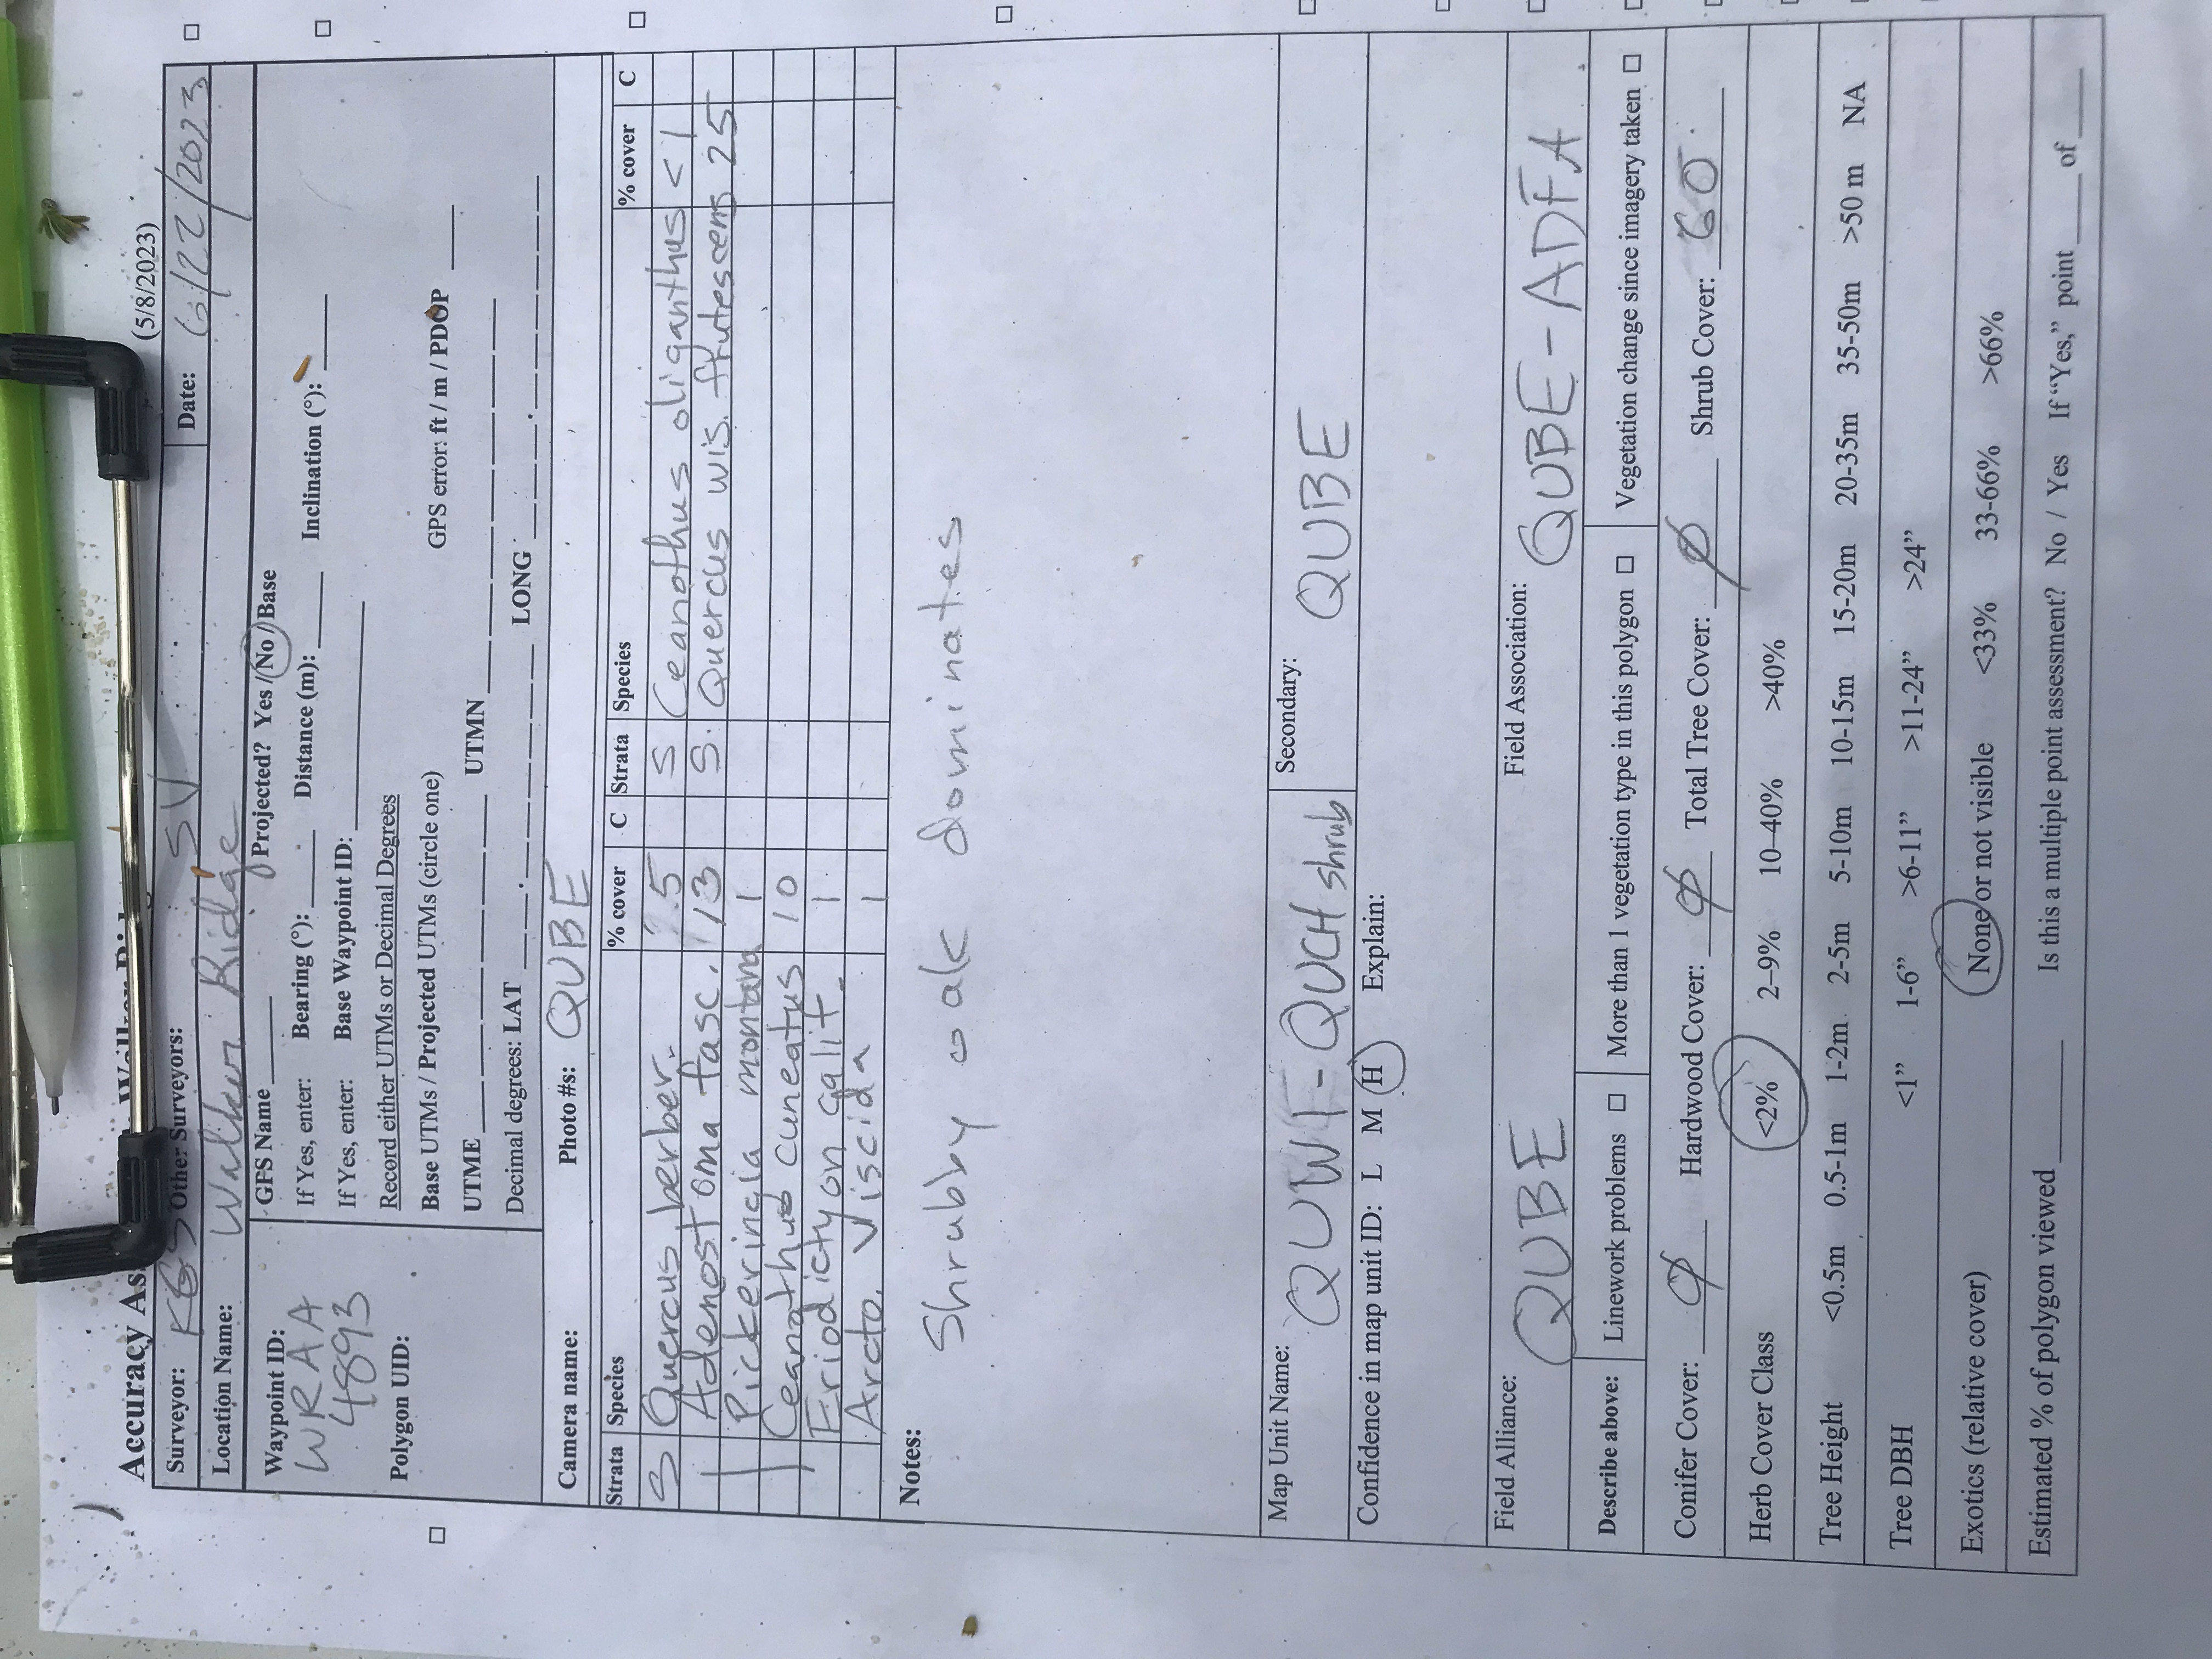 Accuracy As
(5/8/2023)
Surveyor: KGS Other Surveyors: SV Date: 6/22/2023
Location Name: Walker Ridge
Waypoint ID: WRAA 4893
Polygon UID:
GPS Name ____ Projected? Yes / No / Base
If Yes, enter: Bearing (°): ____ Distance (m): ____ Inclination (°): ____
If Yes, enter: Base Waypoint ID: ____
Record either UTMs or Decimal Degrees
Base UTMs / Projected UTMs (circle one) GPS error: ft / m / PDOP ____
UTME ____ UTMN ____
Decimal degrees: LAT ____ . ____ LONG ____ . ____
Camera name: Photo #s: QUBE
Strata Species % cover C Strata Species % cover C
S Quercus berber. 15 S Ceanothus oliganthus <1
Adenostoma fasc. 13 S Quercus wis. frutescens 25
Pickeringia montana 1
Ceanothus cuneatus 10
Eriodictyon calif. 1
Arcto. viscida 1
Notes:
Shrubby oak dominates
Map Unit Name: QUWI-QUCH shrub Secondary: QUBE
Confidence in map unit ID: L M H Explain:
Field Alliance: QUBE Field Association: QUBE-ADFA
Describe above: Linework problems □ More than 1 vegetation type in this polygon □ Vegetation change since imagery taken □
Conifer Cover: ∅ Hardwood Cover: ∅ Total Tree Cover: ∅ Shrub Cover: 60
Herb Cover Class <2% 2–9% 10–40% >40%
Tree Height <0.5m 0.5-1m 1-2m 2-5m 5-10m 10-15m 15-20m 20-35m 35-50m >50 m NA
Tree DBH <1” 1-6” >6-11” >11-24” >24”
Exotics (relative cover) None or not visible <33% 33-66% >66%
Estimated % of polygon viewed ____ Is this a multiple point assessment? No / Yes If “Yes,” point ____ of ____